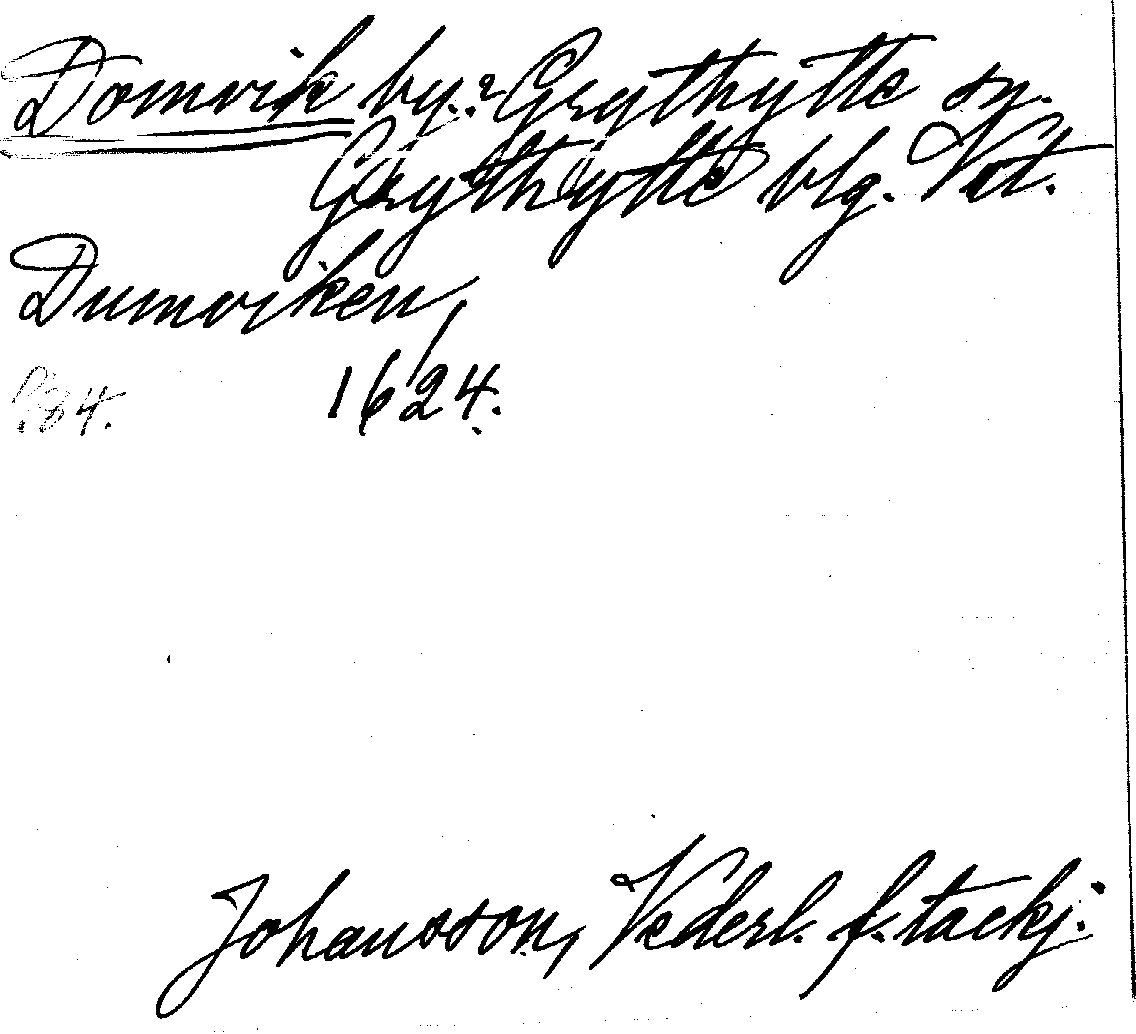 Domvik by.? Grythytte sn.
Grythytte blg. Vst.
Dumviken,
1624.
Johansson, Vederl. f. tackj.